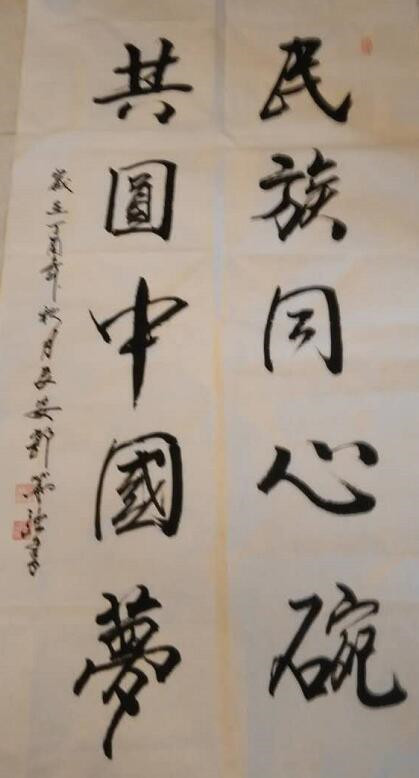 民族同心碗
共圓中國夢
歲在丁酉年秋月長安